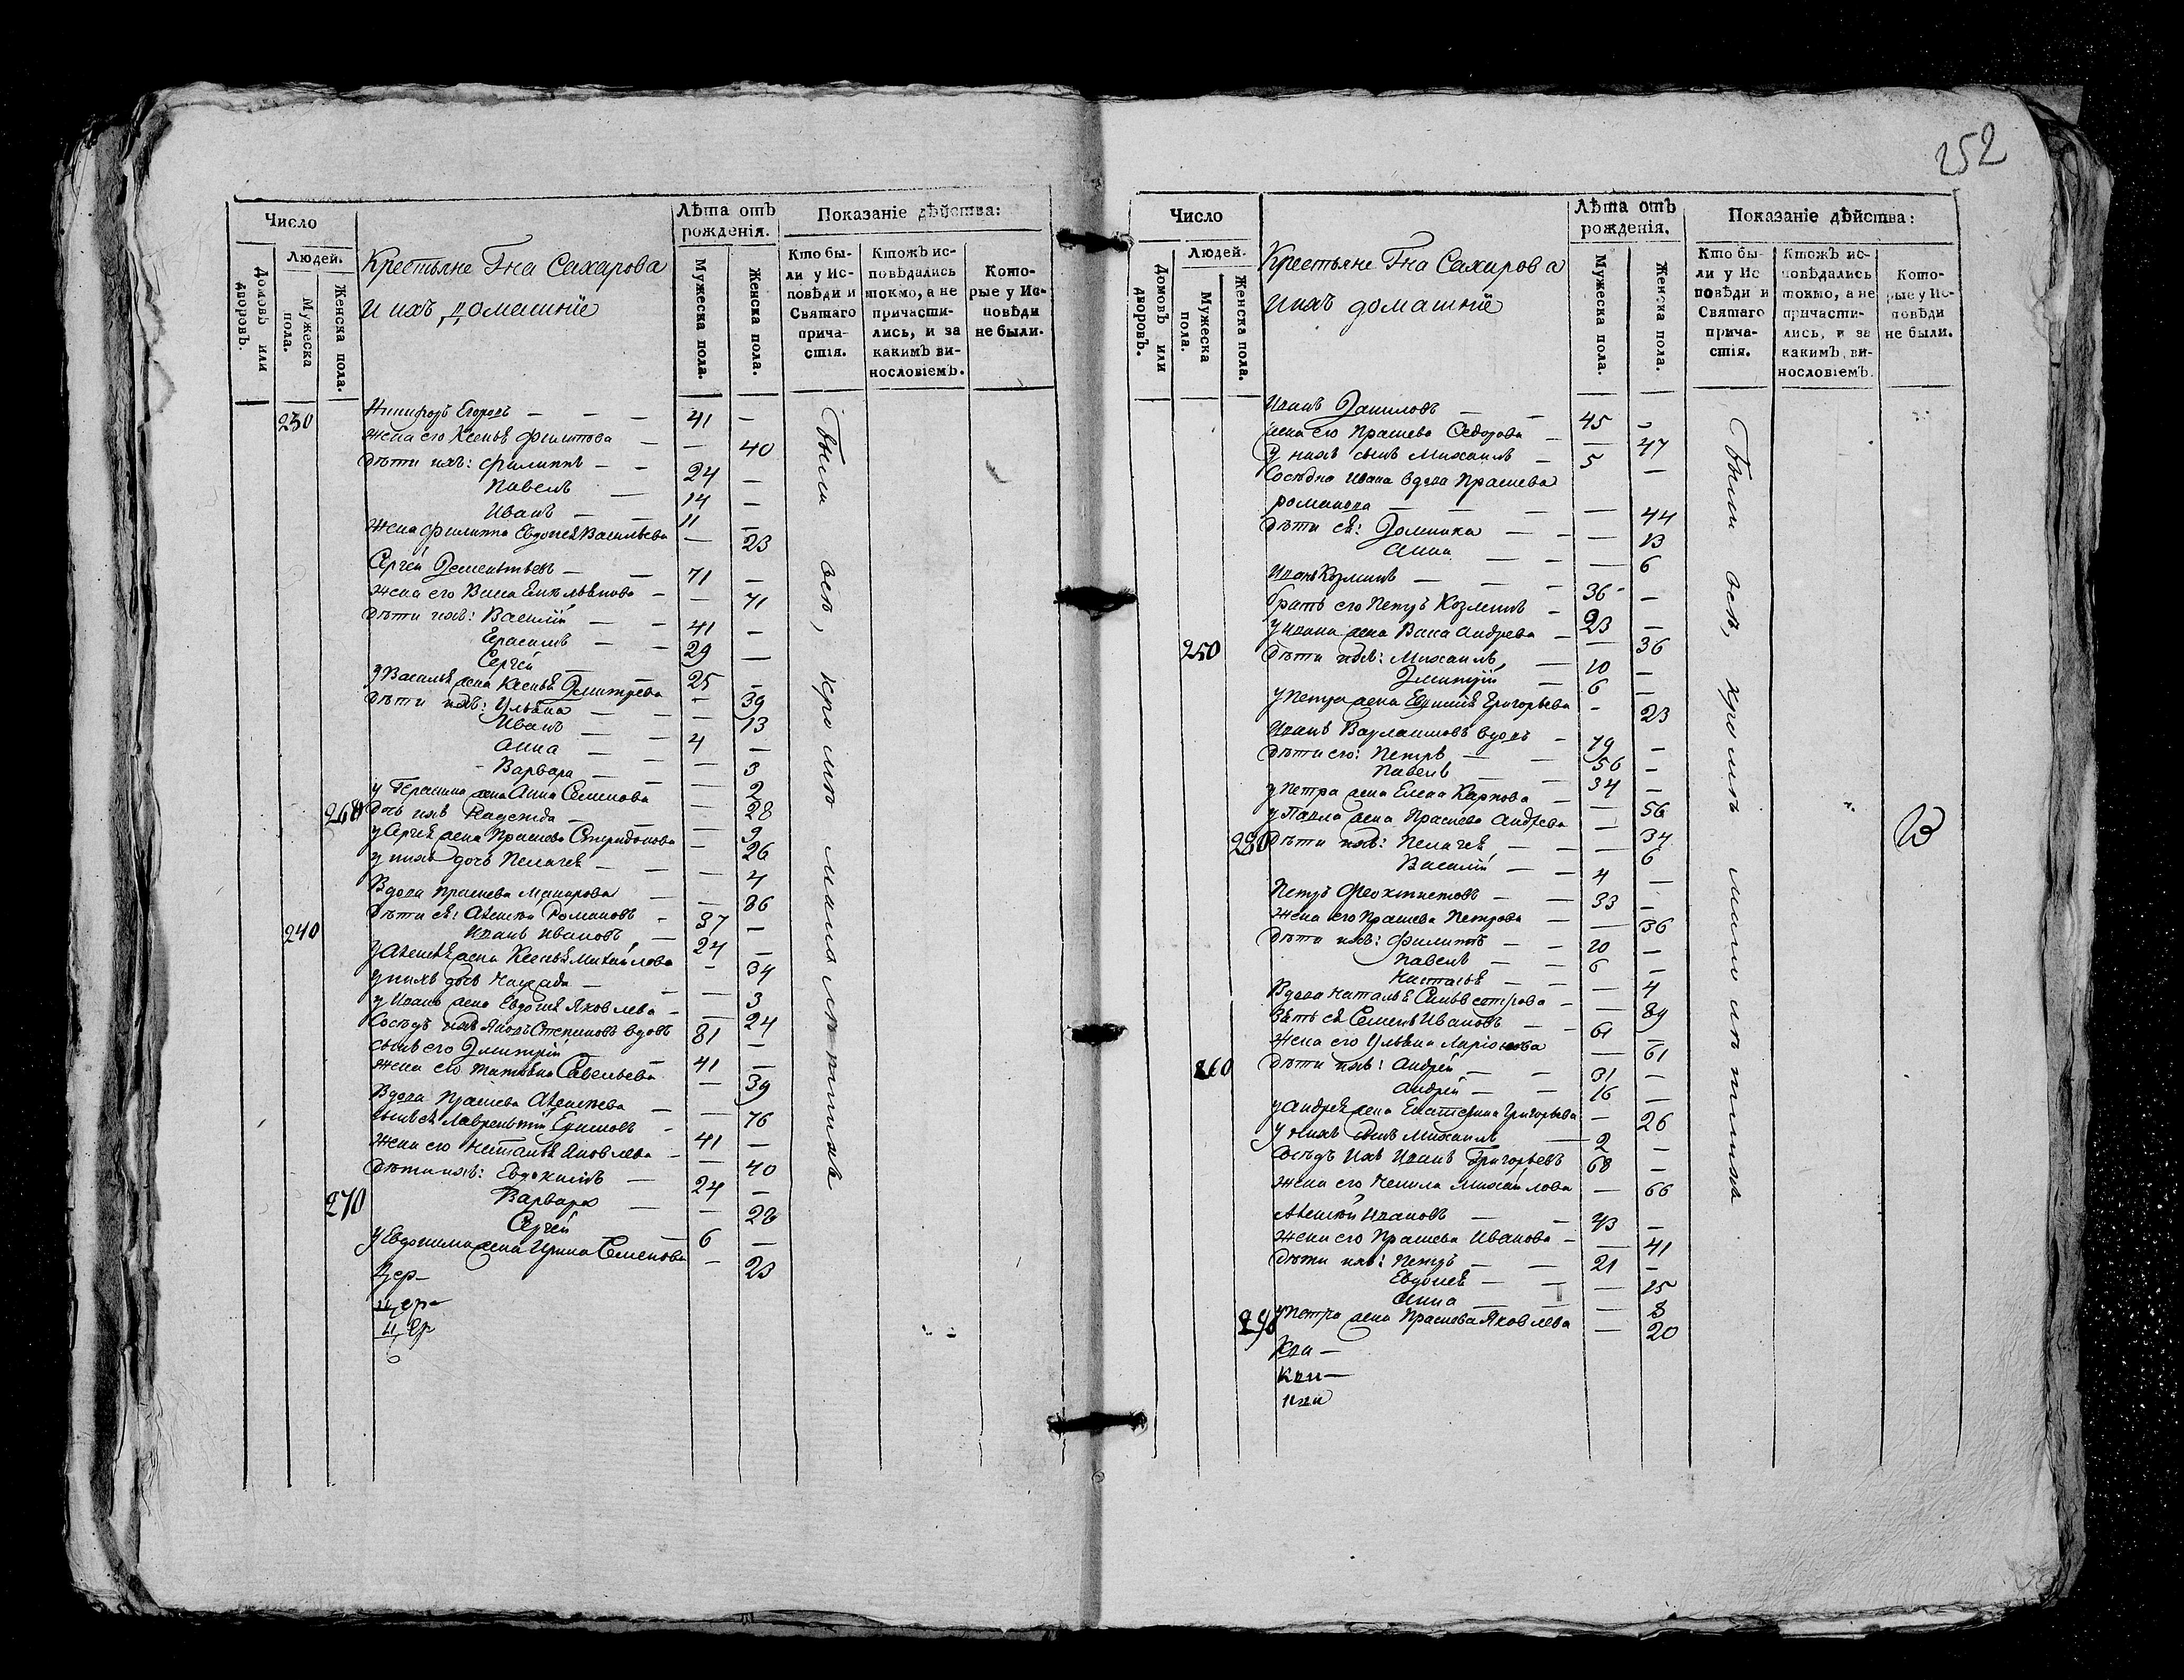 252
Число
Людей.
Домовъ или дворовъ.
Мужеска пола.
Женска пола.
Крестьяне Гна Сахарова
и ихъ домашніе
Лѣта отъ рожденія.
Мужеска пола.
Женска пола.
Показаніе дѣйства:
Кто бы-
ли у Ис-
повѣди и
Святаго
прича-
стія.
Ктожъ ис-
повѣдались
токмо, а не
причасти-
лись, и за
какимъ ви-
нословіемъ.
Кото-
рые у Ис-
повѣди
не были.
230 Никифоръ Егоровъ — 41 —
жена его Ксенья Филипова — — 40
дѣти ихъ: Филиппъ — 24 —
Павелъ — 14 —
Иванъ — 11 —
жена Филиппа Евдокея Васильева — 23
Сергей Дементьевъ — 71 —
жена его Васса — 71
дѣти ихъ: Василий — 41 —
Герасимъ — 29 —
Сергей — 25 —
у Василья жена Ксенья Дмитрева — 39
дѣти ихъ: Ульяна — 13
Иванъ — 4 —
Анна — 3
Варвара — 2
у Герасима жена Анна Семенова — 28
дчь ихъ Надежда — 9
у Сергея жена Прасковья Спиридонова — 26
у нихъ дочь Пелагея — 4
Вдова Прасковья Макарова — 86
240 дѣти ея: Алексѣй Романовъ — 37 —
Иванъ Ивановъ — 24 —
у Алексѣя жена Ксенья Михайлова — 34
у нихъ дочь — 3
у Ивана жена Евдокея Яковлева — 24
Сосѣдъ ихъ Яковъ Степановъ вдовъ 81 —
сынъ его Дмитрий — 41 —
жена его Татьяна Савельева — 39
Вдова Прасковья Алексеева — 76
сынъ ея Лаврентий Ефимовъ — 41 —
жена его Наталья Яковлева — 40
дѣти ихъ: Евдокимъ — 24 —
270 Варвара — 28
Сергей — 6 —
у Евдокима жена Ирина Семенова — 23
Цер—
Цер—
Цер
Были всѣ, кромѣ малолѣтнихъ
Число
Людей.
Домовъ или дворовъ.
Мужеска пола.
Женска пола.
Крестьяне Гна Сахарова
и ихъ домашніе
Лѣта отъ рожденія.
Мужеска пола.
Женска пола.
Показаніе дѣйства:
Кто бы-
ли у Ис
повѣди и
Святаго
прича-
стія.
Ктожъ ис-
повѣдались
токмо, а не
причасти-
лись, и за
какимъ ви-
нословіемъ.
Кото-
рые у Ис-
повѣди
не были.
Иванъ Даниловъ — 45 —
жена его Прасковья Федорова — 47
у нихъ сынъ Михаилъ — 5 —
Сосѣдка Ивана вдова Прасковья
Романова — 44
дѣти ея: Домника — 13
Анна — 6
Иванъ Козминъ — 36 —
братъ его Петръ Козминъ — 23 —
у Ивана жена Васса Андрева — 36
250 дѣти ихъ: Михаилъ — 10 —
Дмитрий — 6 —
у Петра жена Григорьева — 23
Иванъ Варламовъ вдовъ — 79 —
дѣти его: Петръ — 56 —
Павелъ — 34 —
у Петра жена Елена Карпова — 56
у Павла жена Прасковья Андрева — 34
280 дѣти ихъ: Пелагея — 6
Василий — 4 —
Петръ Феоктистовъ — 33 —
жена его Прасковья Петрова — 36
дѣти ихъ: Филиппъ — 10 —
Павелъ — 6 —
Наталья — 4
Вдова Наталья Сильвестрова — 89
Зять ея Семенъ Ивановъ — 61 —
жена его Ульяна Ларионова — 61
260 дѣти ихъ: Андрей — 31 —
Андрей — 16 —
у Андрея жена Екатерина Григорьева — 26
у нихъ сынъ Михаилъ — 2 —
Сосѣдъ ихъ Иванъ Григорьевъ 68 —
жена его Ненила Михайлова — 66
Алексѣй Ивановъ — 43 —
жена его Прасковья Иванова — 41
дѣти ихъ: Петръ — 21 —
Евдокея — 15
Анна — 8
290 у Петра жена Прасковья Яковлева — 20
Были всѣ, кромѣ малолѣтнихъ